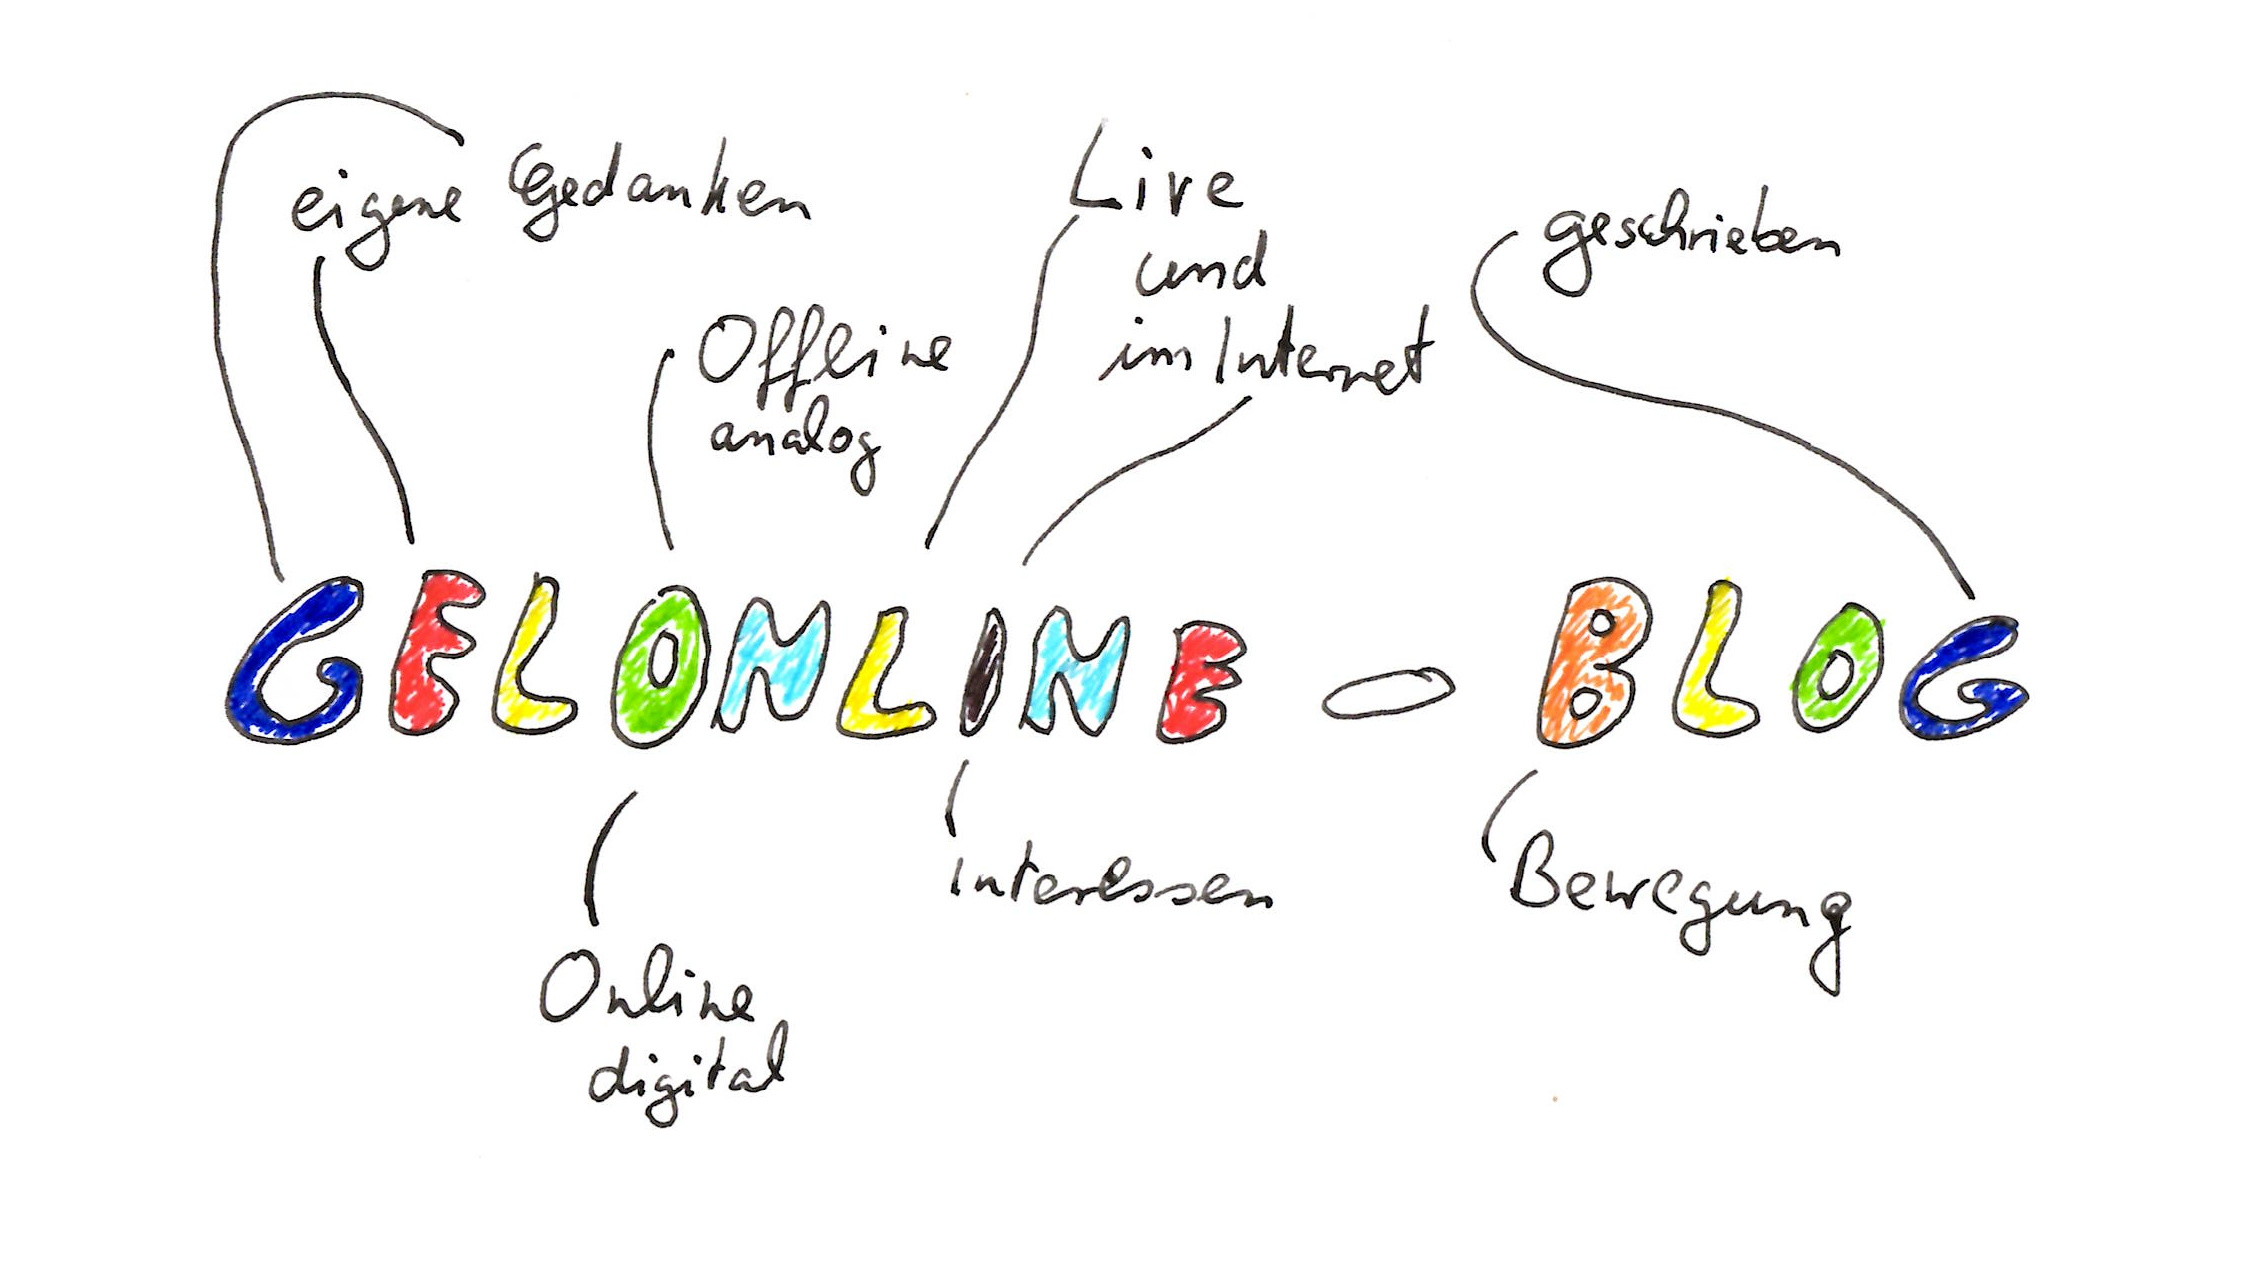 eigene Gedanken
Live
und
im Internet
geschrieben
Offline
analog
GELONLINE - BLOG
Interessen
Bewegung
Online
digital